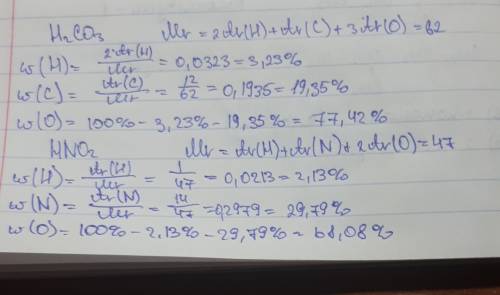 H₂CO₃ Mr = 2Ar(H)+Ar(C)+3Ar(O)=62
w(H)= 2Ar(H)/Mr = 0,0323 = 3,23%
w(C)= Ar(C)/Mr = 12/62 = 0,1935 = 19,35%
w(O)= 100% - 3,23% - 19,35% = 77,42%
HNO₂ Mr = Ar(H)+Ar(N)+2Ar(O)=47
w(H)= Ar(H)/Mr = 1/47 = 0,0213 = 2,13%
w(N)= Ar(N)/Mr = 14/47 = 0,2979 = 29,79%
w(O)= 100% - 2,13% - 29,79% = 68,08%